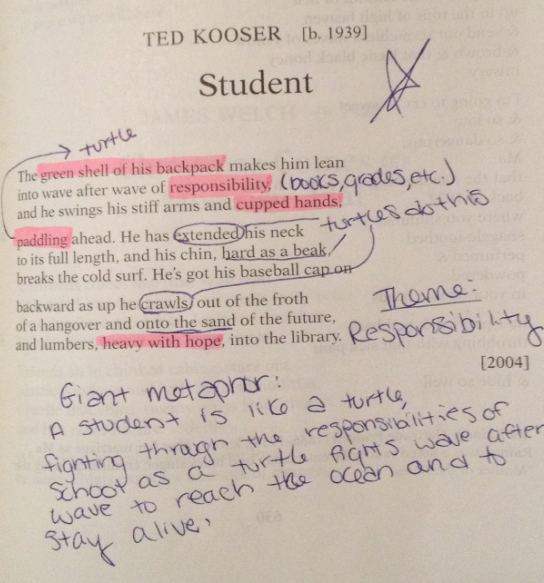 TED KOOSER [b. 1939]
Student
turtle
The green shell of his backpack makes him lean
into wave after wave of responsibility, (books, grades, etc.)
and he swings his stiff arms and cupped hands,
turtles do this
paddling ahead. He has extended his neck
to its full length, and his chin, hard as a beak,
breaks the cold surf. He's got his baseball cap on
backward as up he crawls, out of the froth
of a hangover and onto the sand of the future,
and lumbers, heavy with hope, into the library.
Theme:
Responsibility
[2004]
Giant metaphor:
A student is like a turtle,
fighting through the responsibilities of
school as a turtle fights wave after
wave to reach the ocean and to
stay alive.